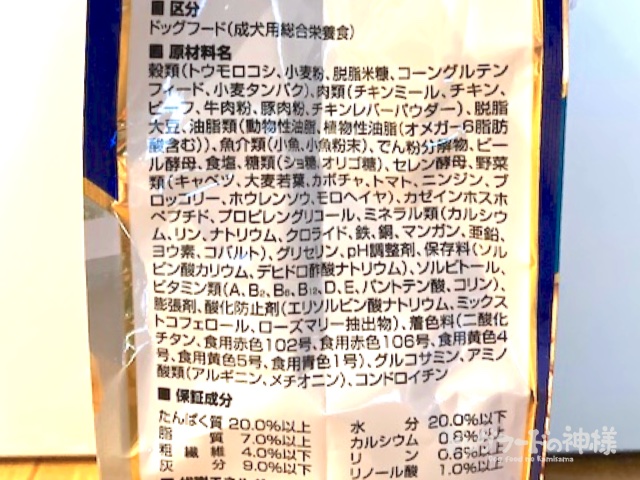 ■ 区分
ドッグフード(成犬用総合栄養食)
■ 原材料名
穀類(トウモロコシ、小麦粉、脱脂米糠、コーングルテン
フィード、小麦タンパク)、肉類(チキンミール、チキン、
ビーフ、牛肉粉、豚肉粉、チキンレバーパウダー)、脱脂
大豆、油脂類(動物性油脂、植物性油脂(オメガ-6脂肪
酸含む))、魚介類(小魚、小魚粉末)、でん粉分解物、ビー
ル酵母、食塩、糖類(ショ糖、オリゴ糖)、セレン酵母、野菜
類(キャベツ、大麦若葉、カボチャ、トマト、ニンジン、ブ
ロッコリー、ホウレンソウ、モロヘイヤ)、カゼインホスホ
ペプチド、プロピレングリコール、ミネラル類(カルシウ
ム、リン、ナトリウム、クロライド、鉄、銅、マンガン、亜鉛、
ヨウ素、コバルト)、グリセリン、pH調整剤、保存料(ソル
ビン酸カリウム、デヒドロ酢酸ナトリウム)、ソルビトール、
ビタミン類(A、B₂、B₆、B₁₂、D、E、パントテン酸、コリン)、
膨張剤、酸化防止剤(エリソルビン酸ナトリウム、ミックス
トコフェロール、ローズマリー抽出物)、着色料(二酸化
チタン、食用赤色102号、食用赤色106号、食用黄色4
号、食用黄色5号、食用青色1号)、グルコサミン、アミノ
酸類(アルギニン、メチオニン)、コンドロイチン
■ 保証成分
たんぱく質 20.0%以上 水分 20.0%以下
脂質 7.0%以上 カルシウム 0.8%以上
粗繊維 4.0%以下 リン 0.6%以上
灰分 9.0%以下 リノール酸 1.0%以上
ドッグフードの神様